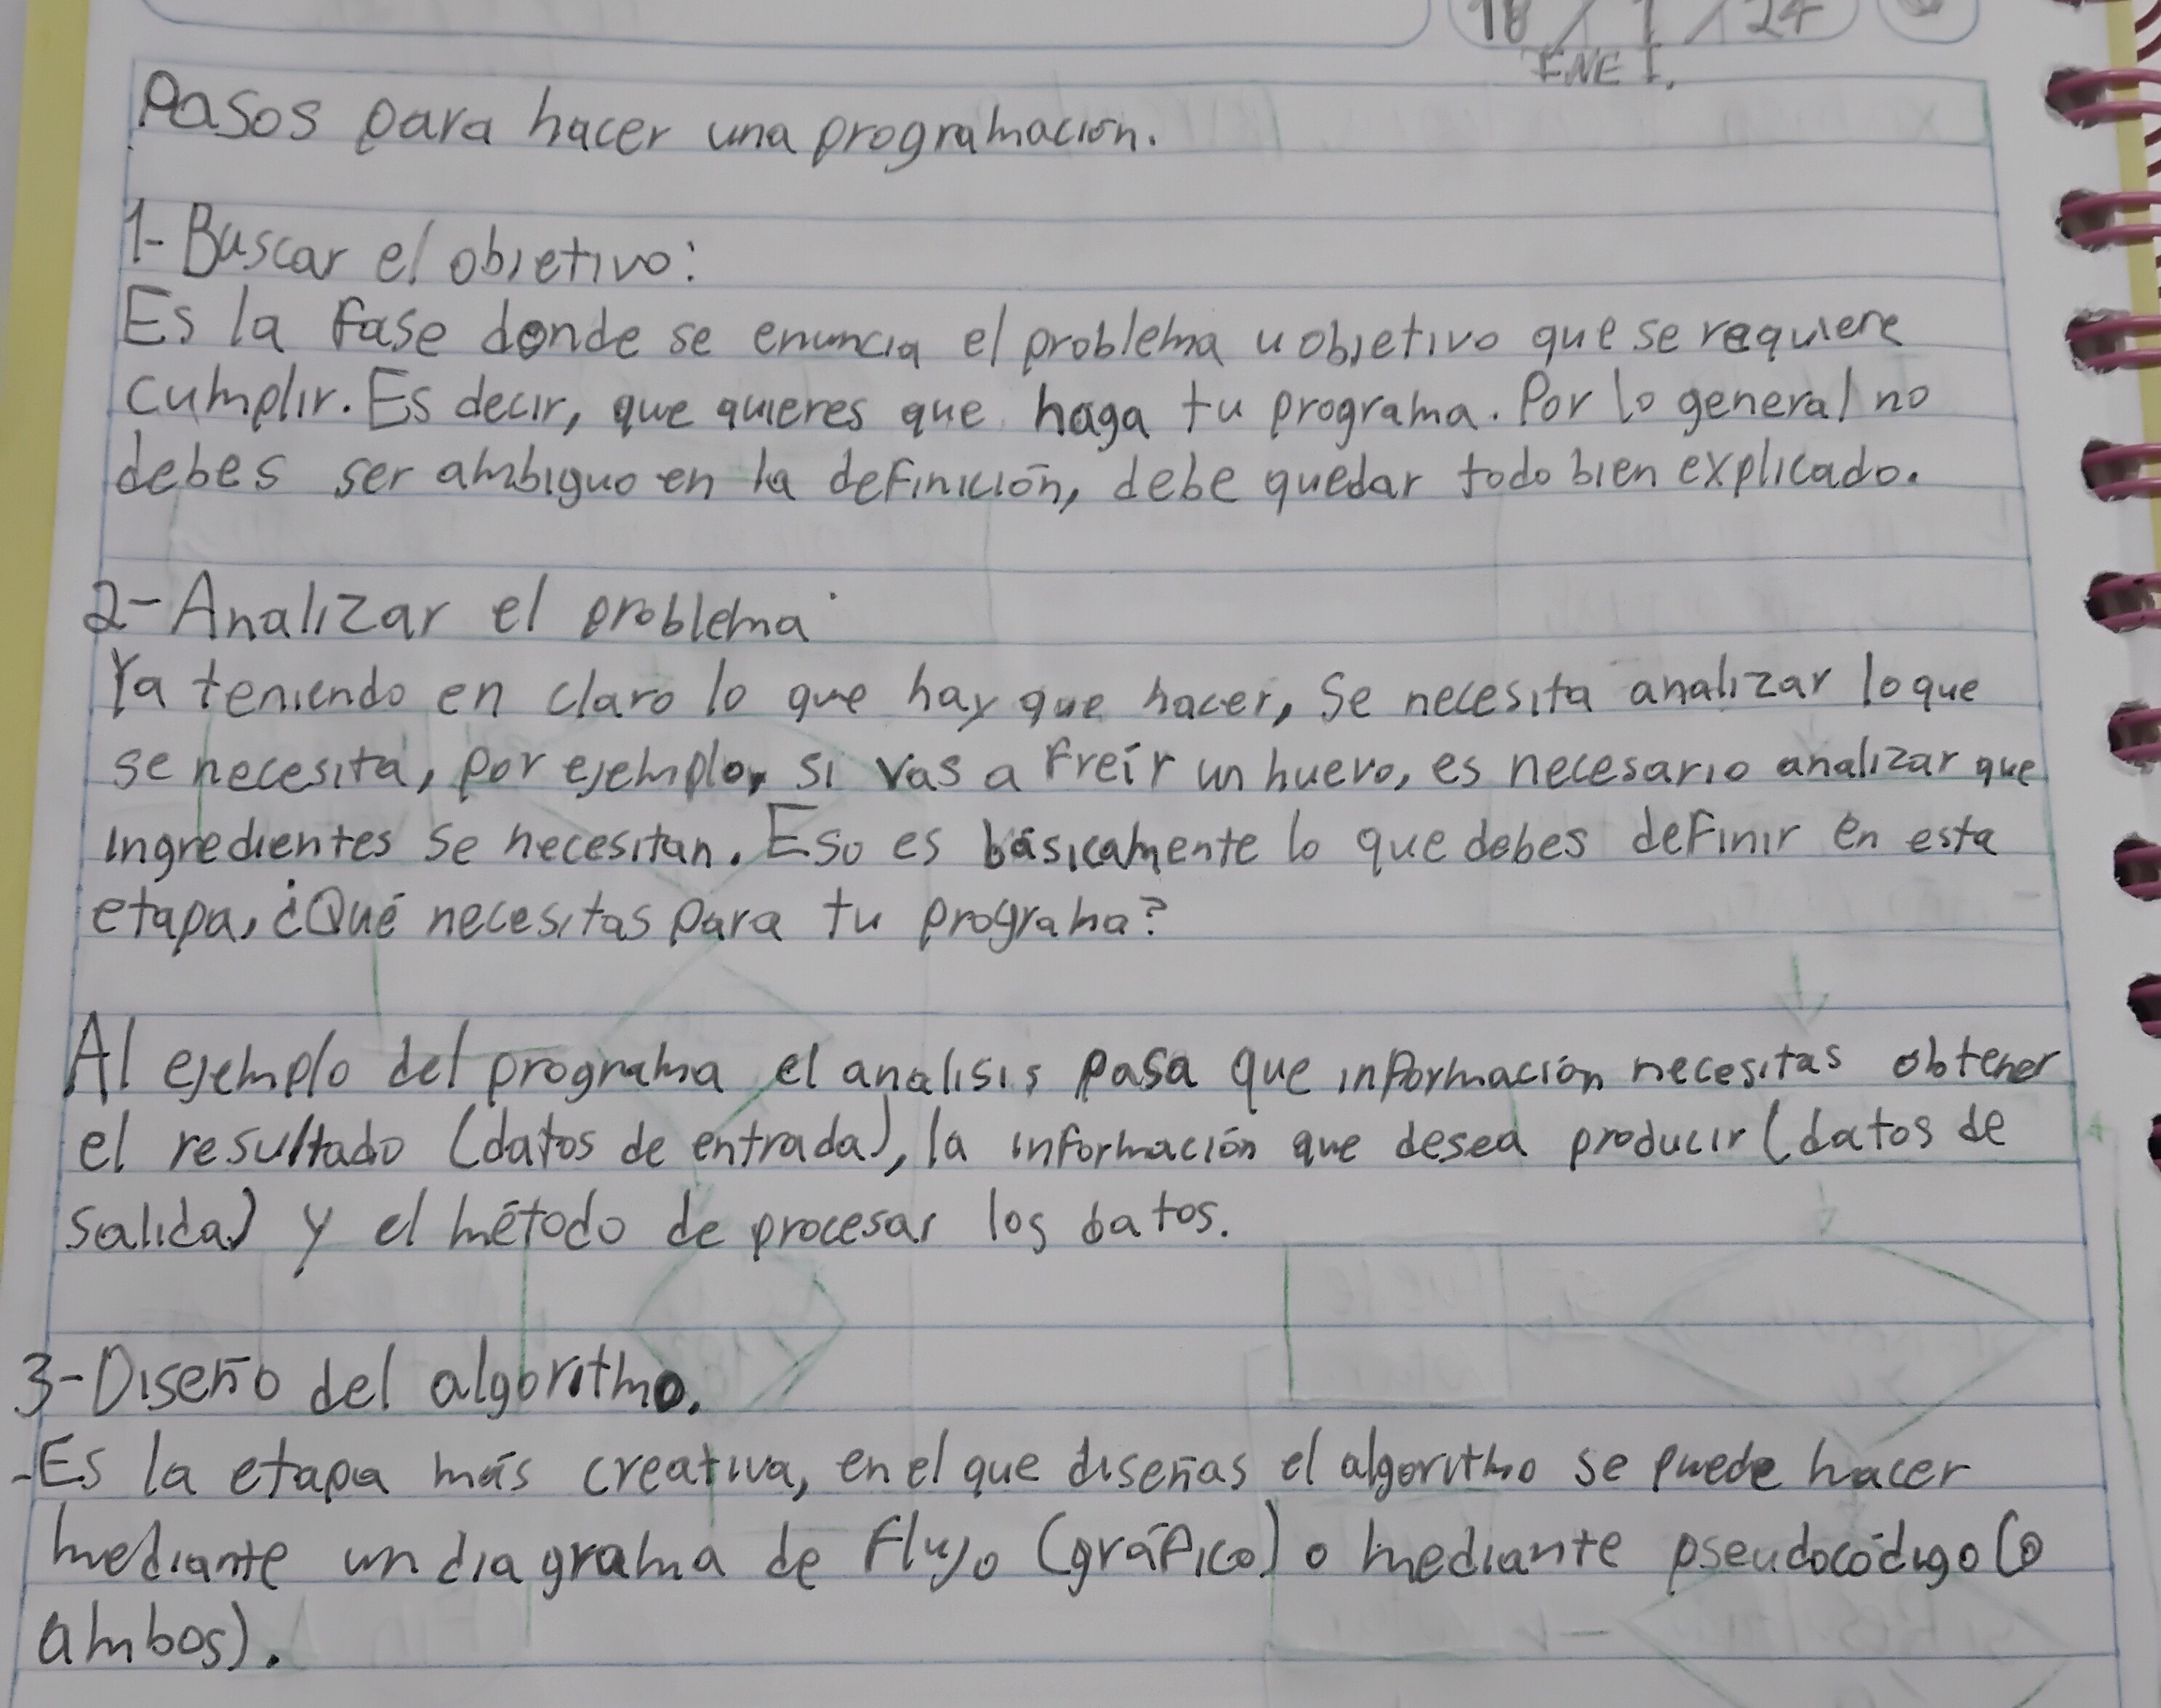 18 / 1 / 24
ENE I.
Pasos para hacer una programación.
1- Buscar el objetivo:
Es la fase donde se enuncia el problema u objetivo que se requiere
cumplir. Es decir, que quieres que haga tu programa. Por lo general no
debes ser ambiguo en la definición, debe quedar todo bien explicado.
2- Analizar el problema
Ya teniendo en claro lo que hay que hacer, se necesita analizar lo que
se necesita, por ejemplo, si vas a freír un huevo, es necesario analizar que
ingredientes se necesitan. Eso es básicamente lo que debes definir en esta
etapa, ¿Qué necesitas para tu programa?
Al ejemplo del programa el analisis pasa que información necesitas obtener
el resultado (datos de entrada), la información que desea producir (datos de
salida) y el método de procesar los datos.
3- Diseño del algoritmo.
-Es la etapa más creativa, en el que diseñas el algoritmo se puede hacer
mediante un diagrama de flujo (gráfico) o mediante pseudocódigo (o
ambos).